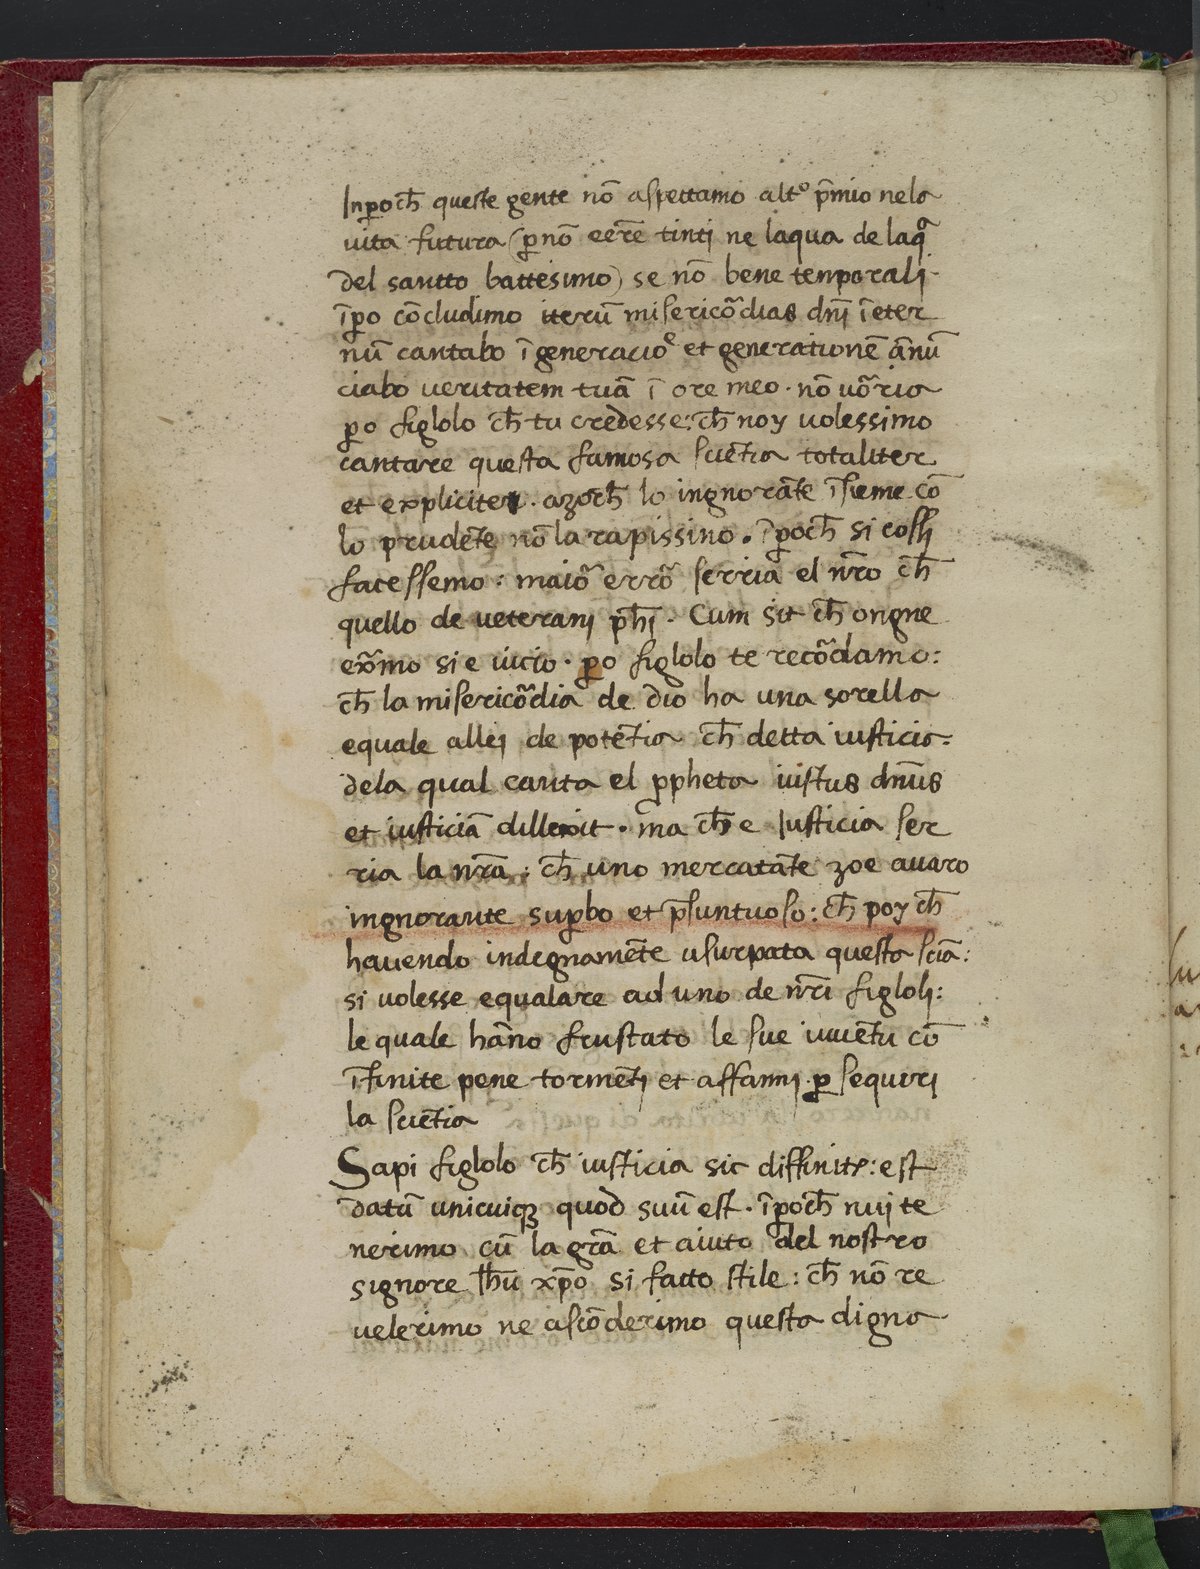 Inꝑoch̄ queste gente nō aspettamo altº p̄mio nela
uita futura (ꝑ nō eer̄e tinti ne laqua de laqͣ
del santto battesimo) se nō bene temporali·
īꝑo cōcludimo iterū misericōdias dn̄i īeter
nū cantabo ī generacioº et generationē ānū
ciabo ueritatem tuā ī ore meo · nō uōria
ꝑo figlolo ch̄ tu credesse: ch̄ noy uolessimo
cantare questa famosa sciētia totaliter
et expliciter · azoch̄ lo ingnorāte īsieme cō
lo prudēte nō la rapissino . īꝑoch̄ si cossi
facessemo : maiō errō serria el nr̄o ch̄
quello de ueterani ph̄i · Cum sit ch̄ ongne
exr̄mo si e uicio · ꝑo figlolo te recōdamo:
ch̄ la misericōdia de dio ha una sorella
equale allei de potētia ch̄ detta iusticia:
dela qual canta el ꝓpheta iustus dn̄us
et iusticiā dillexit · ma ch̄ e Iusticia ser
ria la nr̄a : ch̄ uno mercatāte zoe auaro
ingnorante suꝑbo et p̄suntuoso: ch̄ poy ch̄
hauendo indegnamēte usurpata questa sciā:
si uolesse equalare ad uno de nr̄i figloli:
le quale hāno frustato le sue iuuētu cō
īfinite pene tormēti et affanni ꝑ sequiri
la sciētia
Sapi figlolo ch̄ iusticia sic diffinitr: est
datū unicuiqꝫ quod suū est · īꝑoch̄ nui te
nerimo cū la grā et aiuto del nostro
signore Ih̄u xp̄o si fatto stile : ch̄ nō re
uelerimo ne ascōderimo questa digna